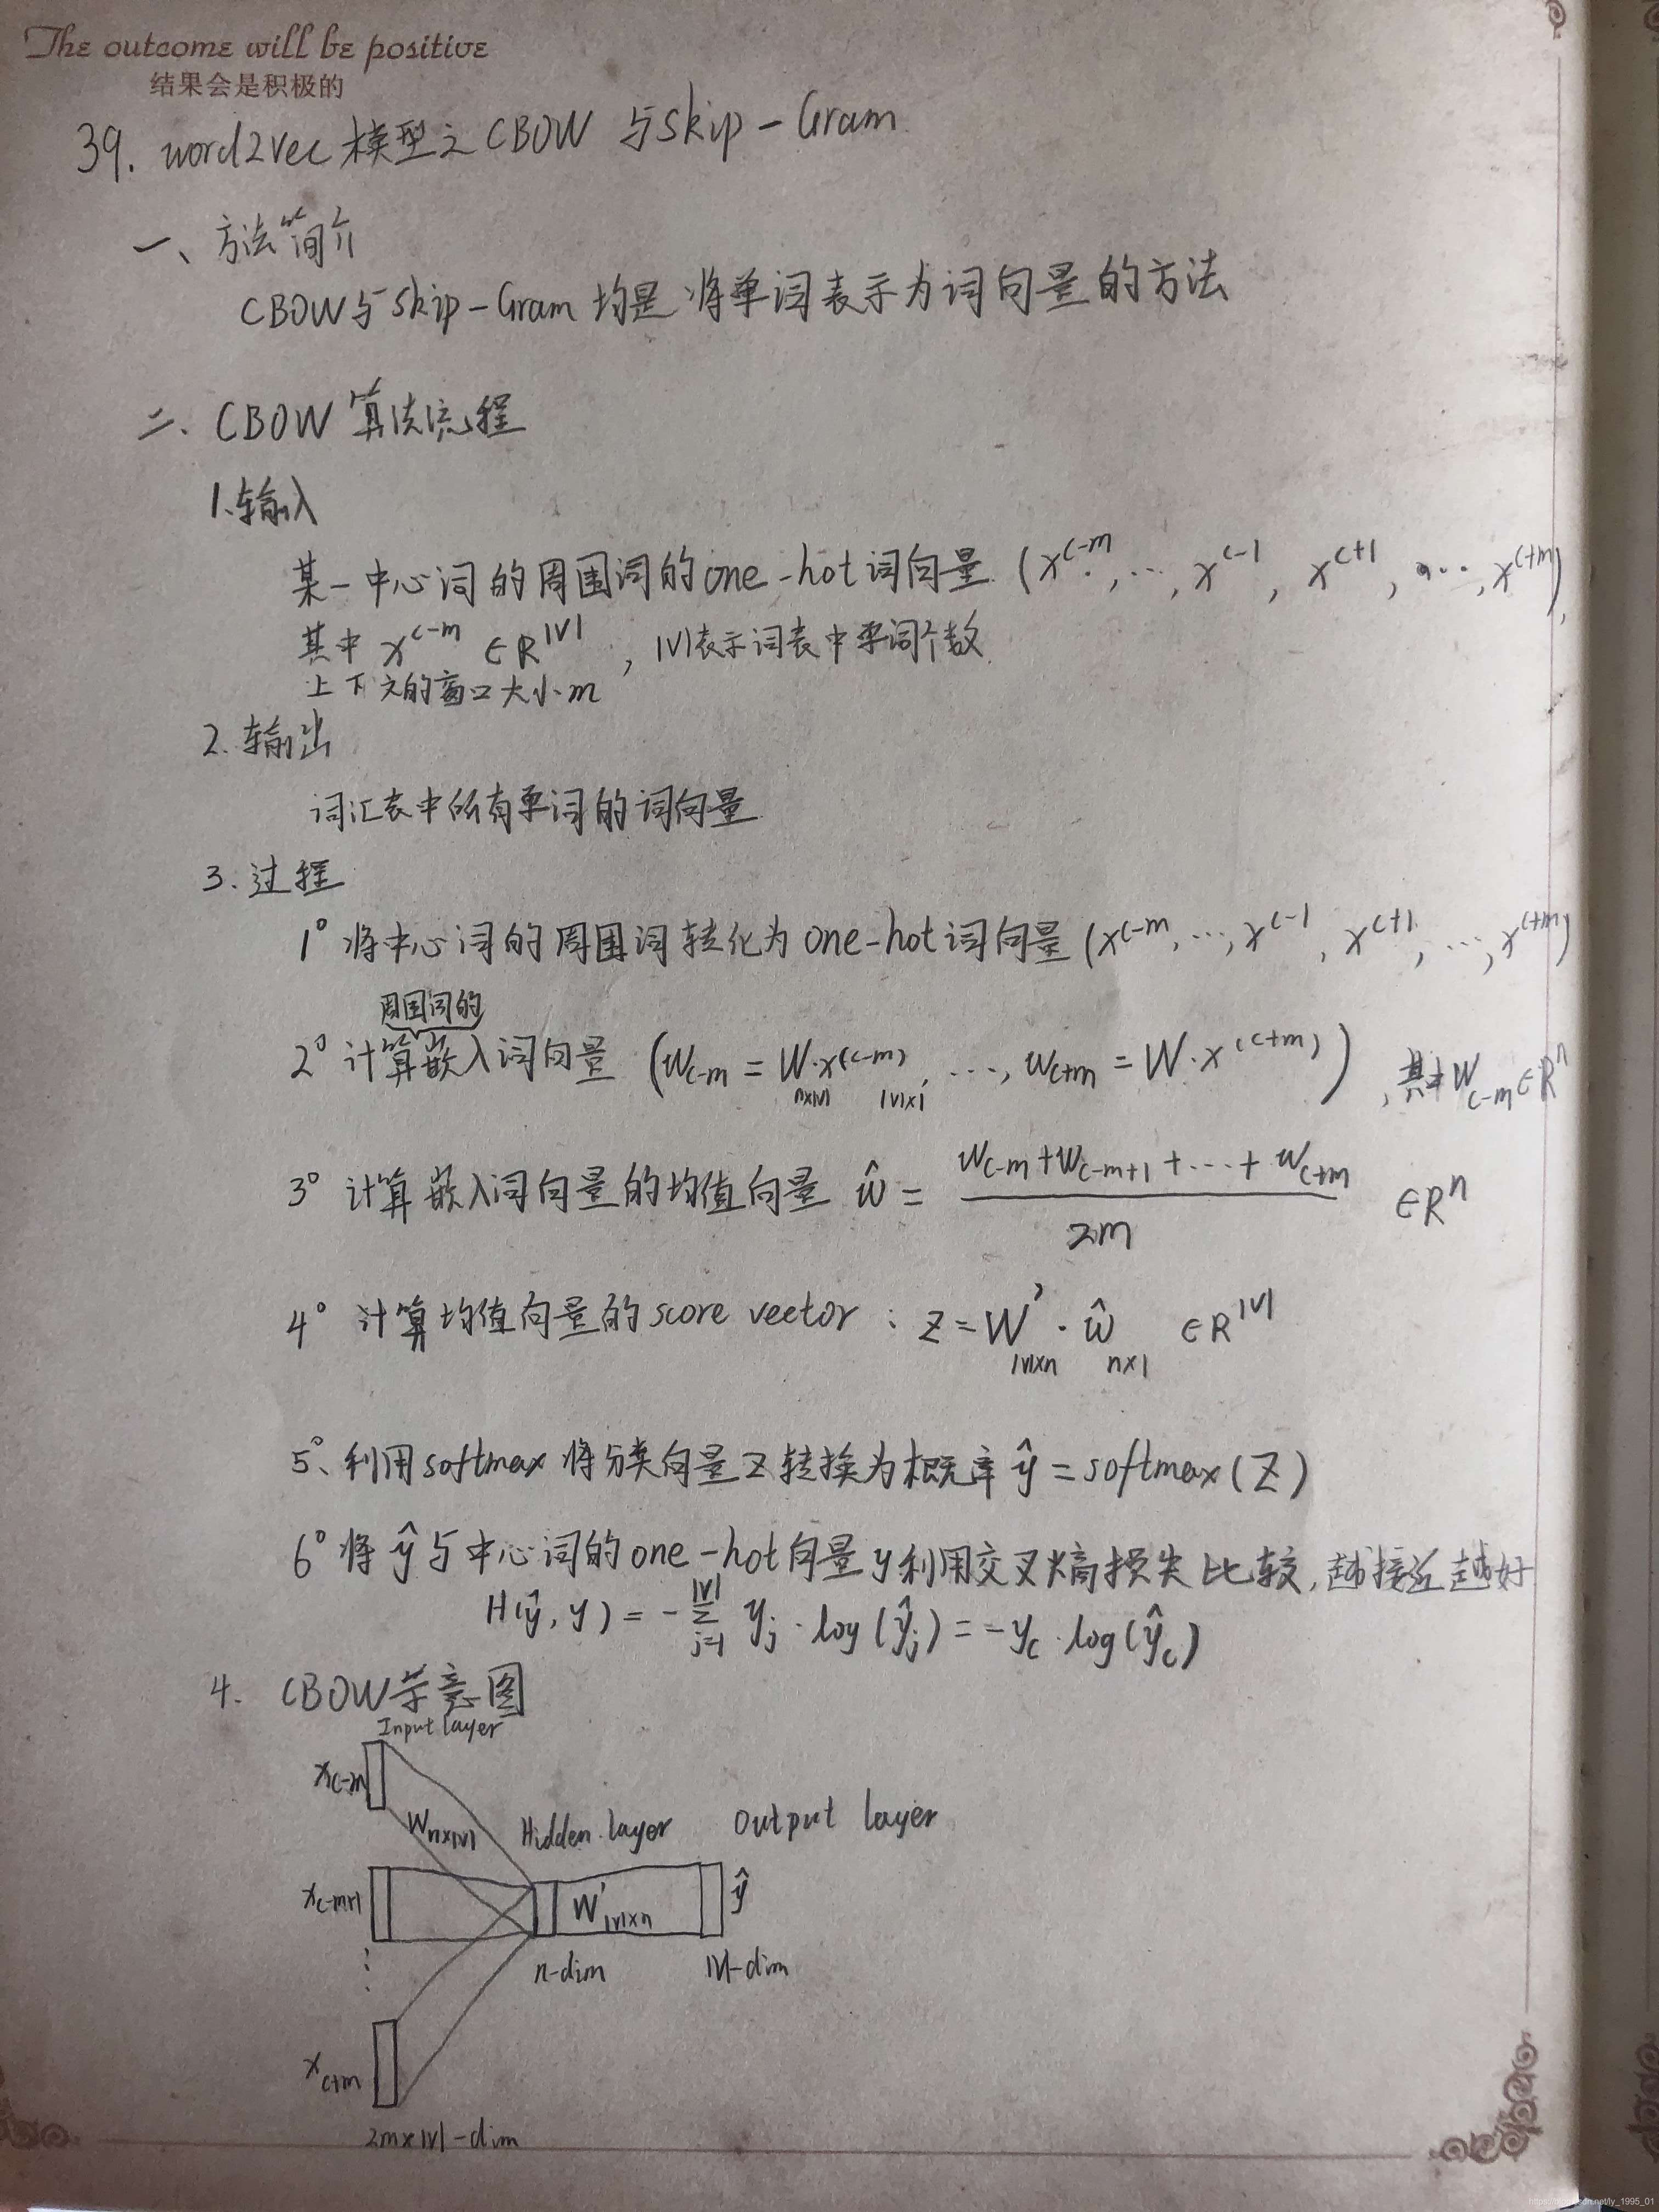 The outcome will be positive
结果会是积极的
39. word2vec 模型之 CBOW 与 skip-Gram
一、方法简介
CBOW与skip-Gram 均是将单词表示为词向量的方法
二、CBOW 算法流程
1.输入
某一中心词的周围词的one-hot词向量 (x^{c-m}, ..., x^{c-1}, x^{c+1}, ..., x^{c+m}),
其中 x^{c-m} ∈ R^{|V|}, |V|表示词表中单词个数
上下文的窗口大小m
2.输出
词汇表中所有单词的词向量
3.过程
1° 将中心词的周围词转化为one-hot词向量 (x^{c-m}, ..., x^{c-1}, x^{c+1}, ..., x^{c+m})
周围词的
2° 计算嵌入词向量 (w_{c-m} = W·x^{(c-m)}, ..., w_{c+m} = W·x^{(c+m)}), 其中 w_{c-m} ∈ R^n
n×|V| |V|×1
3° 计算嵌入词向量的均值向量 ŵ = \frac{w_{c-m}+w_{c-m+1}+...+w_{c+m}}{2m} ∈ R^n
4° 计算均值向量的score vector : z = W'·ŵ ∈ R^{|V|}
|V|×n n×1
5° 利用softmax将分类向量z转换为概率 ŷ = softmax(z)
6° 将ŷ与中心词的one-hot向量y利用交叉熵损失比较,越接近越好
H(ŷ, y) = -∑_{j=1}^{|V|} y_j · log(ŷ_j) = -y_c · log(ŷ_c)
4. CBOW示意图
Input layer
x_{c-m}
W_{n×|V|} Hidden layer Output layer
x_{c-m+1} W'_{|V|×n} ŷ
⋮ n-dim |V|-dim
x_{c+m}
2m×|V|-dim